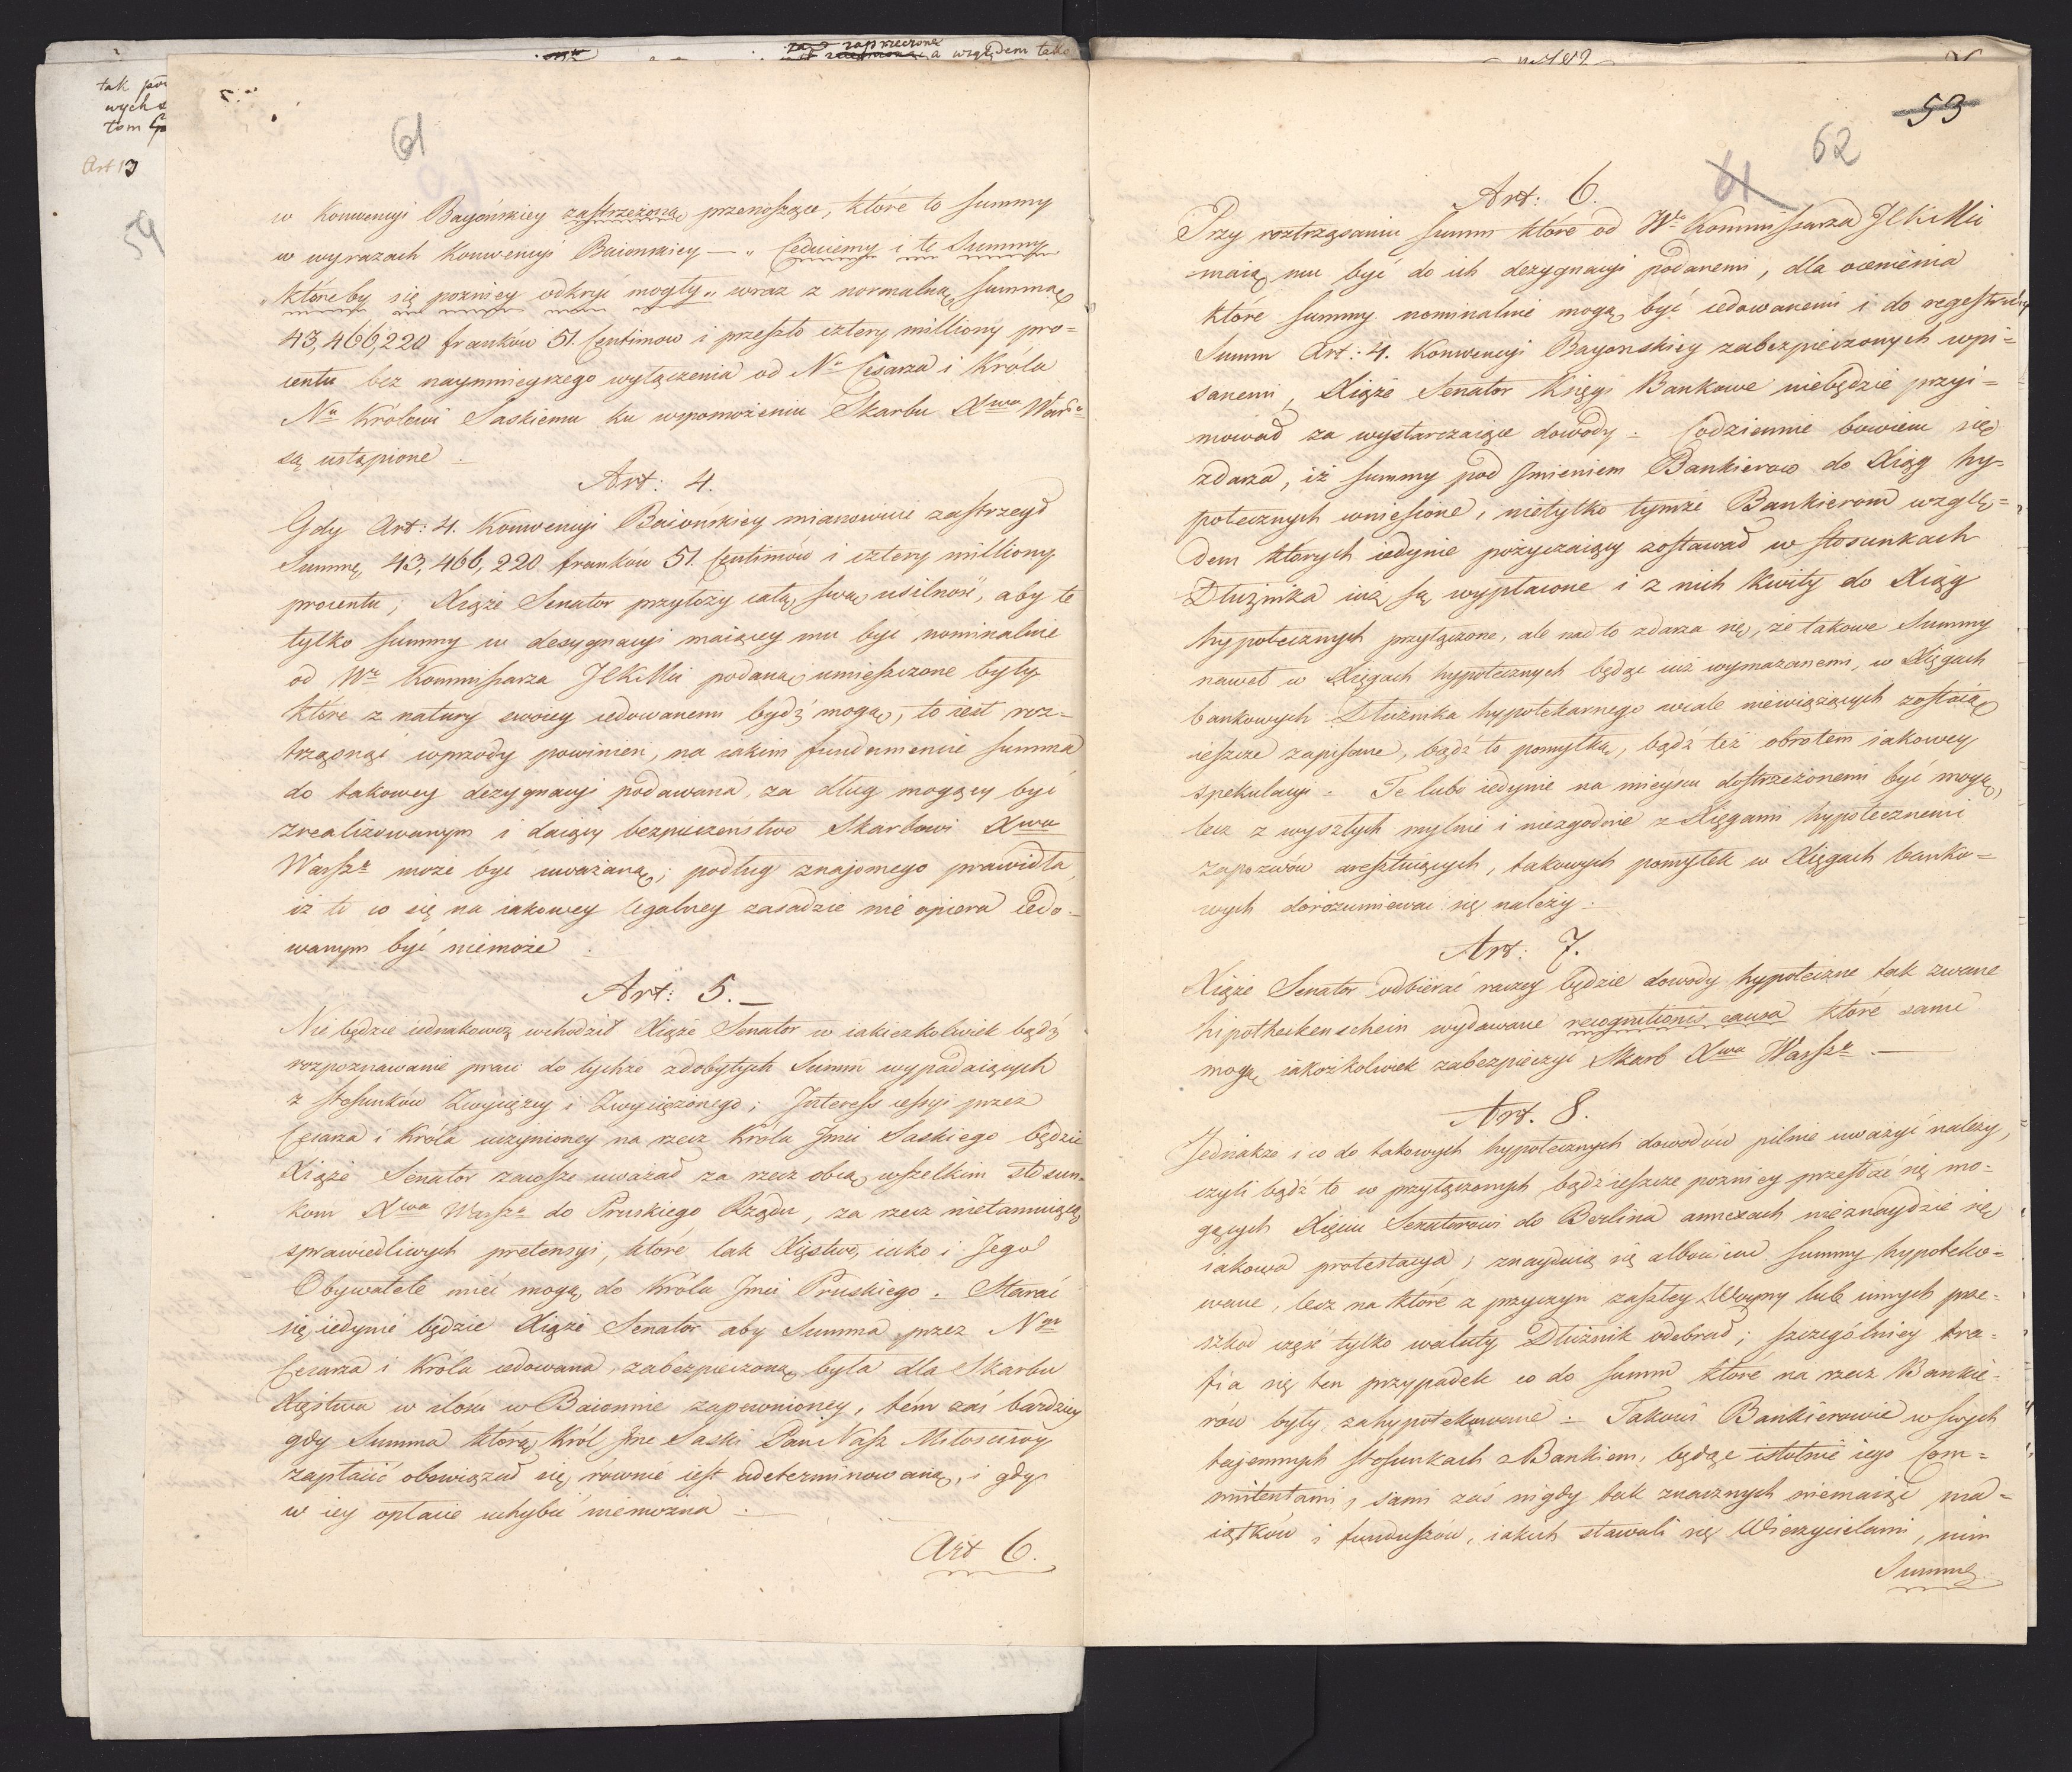 zaprzeczone
względem tak
tak
wych
tom
Art 13
59
61
w Konwencyi Bayońskiey zastrzeżoną przenoszące, które to summy
w wyrazach Konwencyi Baionskiey — „ Cedujemy i te Summy
„ któreby się pozniey odkryć mogły „ wraz z normalną summą
43,466,220 franków 51. Centimow i przeszło cztery milliony pro=
centu bez naymnieyszego wyłączenia od Nº Cesarza i Króla
Nu Królowi Saskiemu ku wspomożeniu Skarbu Xwa Warsº
są ustąpione .
Art: 4.
Gdy Art: 4. Konwencyi Baiońskiey mianowicie zastrzegł
Summę 43,466,220 franków 51. Centimów i cztery milliony
procentu; Xiąże Senator przyłoży całą swą usilność, aby te
tylko summy w desygnacyi maiącey mu być nominalnie
od Wº Kommissarza JCKMci podaną umieszczone były
które z natury swoiey cedowanemi bydź mogą, to iest roz=
trząsnąć wprzody powinien, na iakim fundamencie summa
do takowey dezygnacyi podawana, za dług mogący być
zrealizowanym i daiący bezpieczeństwo Skarbowi Xwa
Warszº może być uważaną; podług znajomego prawidła,
iż to co się na iakowey legalney zasadzie nie opiera cedo=
wanym być niemoże .
Art: 5. —
Nie będzie iednakowoż wchodził Xiąże Senator w iakieżkolwiek bądź
rozpoznawanie praw do tychże zdobytych Summ wypadaiących
z stosunków Zwyciężcy i Zwyciężonego; Interess cessyi przez
Cesarza i Króla uczynioney na rzecz Króla Jmci Saskiego będzie
Xiąże Senator zawsze uważał za rzecz obcą wszelkim stosun=
kom Xwa Warszº do Pruskiego Rządu, za rzecz nietamuiącą
sprawiedliwych pretensyi, które tak Xięstwo, iako i Jego
Obywatele mieć mogą do Króla Jmci Pruskiego. Starać
się iedynie będzie Xiąże Senator aby Summa przez Nº
Cesarza i Króla cedowana, zabezpieczoną była dla Skarbu
Xięstwa w ilości w Baionnie zapewnioney, tém zaś bardziey
gdy Summa którą Król Jmc Saski Pan Nasz Miłościwy
zapłacić obowiązał się, równie iest udeterminowaną, i gdy
w iey opłacie uchybić niemożna .
Art 6.
53
62
61
Art: 6.
Przy roztrząsaniu summ które od Wº Kommissarza JCKMci
maią mu być do ich dezygnacyi podanemi, dla ocenienia
które summy nominalnie mogą być cedowanemi i do regestru
Summ Art: 4. Konwencyi Bayonskiey zabezpieczonych wpi=
sanemi, Xiąże Senator Księgi Bankowe niebędzie przyi=
mował za wystarczaiące dowody . Codziennie bowiem się
zdarza, iż summy pod Jmieniem Bankierow do Xiąg hy=
potecznych wniesione, nietylko tymże Bankierom wzglę=
dem których iedynie pożyczaiący zostawał w stosunkach
Dłużnika iuż są wypłacone i z nich kwity do Xiąg
hypotecznych przyłączone, ale nad to zdarza się, że takowe Summy
nawet w Xięgach hypotecznych będąc iuż wymazanemi, w Xięgach
bankowych Dłużnika hypotekarnego wcale niewiążących zostaią
ieszcze zapisane, bądź to pomyłką, bądź też obrotem iakowey
spekulacyi . Te lubo iedynie na mieyscu dostrzeżonemi być mogą,
lecz z wyszłych mylnie i niezgodnie z Xięgami hypotecznemi
zapozwów aresztuiących, takowych pomyłek w Xięgach banko=
wych dorozumiewać się należy .
Art: 7.
Xiąże Senator odbierać raczey będzie dowody hypoteczne tak zwane
hipotheckenschein wydawane recognitionis causa które same
mogą iakożkolwiek zabezpieczyć Skarb Xwa Warszº . —
Art. 8.
Jednakże i co do takowych hypotecznych dowodów pilnie uważyć należy,
czyli bądź to w przyłączonych, bądź ieszcze pozniey przesłać się mo=
gących Xięciu Senatorowi do Berlina annexach nieznaydzie się
iakowa protestacya; znayduią się albowiem summy hypoteko=
wane, lecz na które z przyczyn zaszłey Woyny lub innych prze=
szkod część tylko waluty Dłużnik odebrał; szczególniey tra=
fia się ten przypadek co do summ które na rzecz Bankie=
rów były zahypotekowane . Takowi Bankierowie w swych
tajemnych stosunkach z Bankiem, będąc istotnie iego Com=
mitentami, sami zaś nigdy tak znacznych niemaiąc ma=
iątków i funduszów, iakich stawali się Wierzycielami, nim
Summę